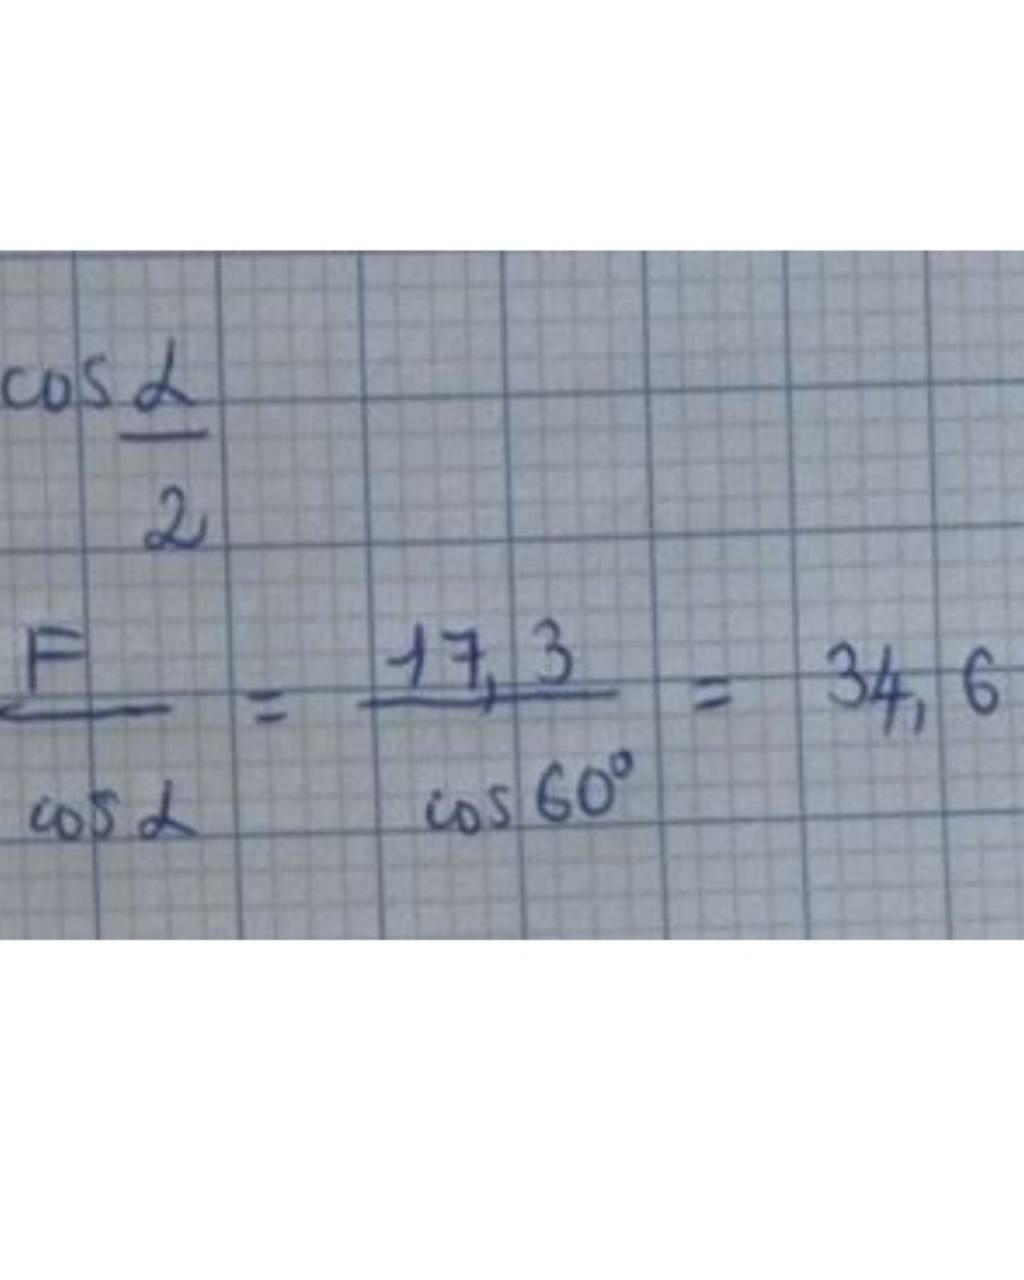 cos α/2
F/cos α = 17,3/cos 60° = 34,6